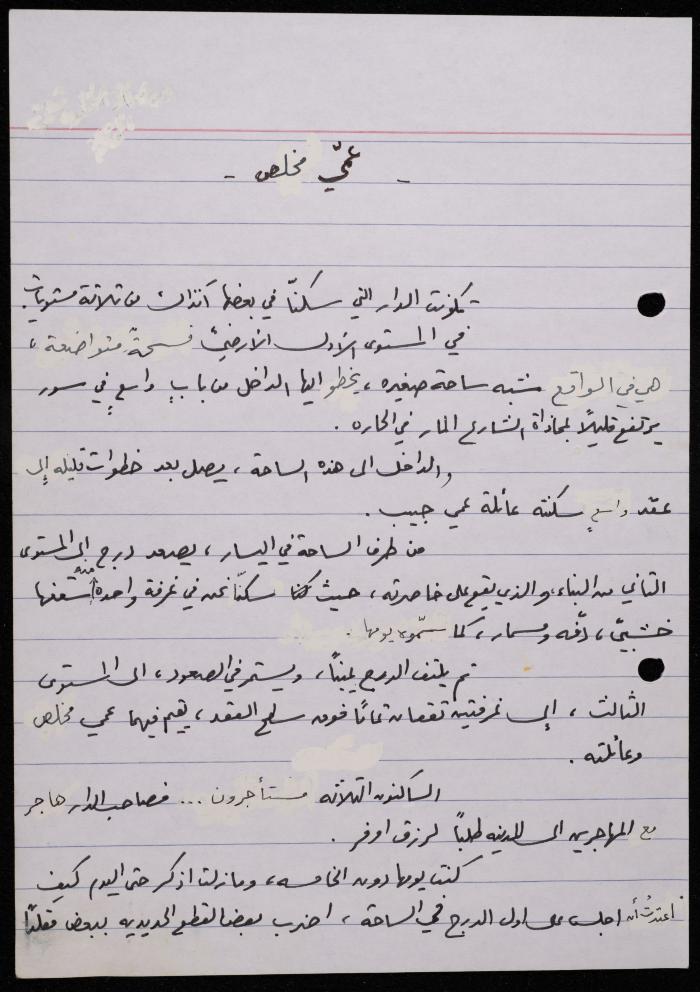 - عمّي مخلص -
تكونت الدار التي سكنّا في بعضها آنذاك من ثلاثة مستويات.
في المستوى الأول الأرضيّ فسحةٌ متواضعة،
هي في الواقع شبه ساحة صغيره، يخطو اليها الداخل من بابٍ واسعٍ في سور
يرتفع قليلاً بمحاذاة الشارع المار في الحاره.
والداخل الى هذه الساحة، يصل بعد خطوات قليله إلى
عقد واسعٍ سكنته عائلة عمي حبيب.
من طرف الساحة في اليسار، يصعد درج الى المستوى
الثاني من البناء، والذي يقع على خاصرته، حيث سكنّا نحن في غرفة واحدة منه سقفها
خشبيّ، دفّه ومسمار، كما سمّوه يومها.
ثم يلتف الدرج يميناً، ويستمر في الصعود، الى المستوى
الثالث، إلى غرفتين تقعان تمامًا فوق سطح العقد، يقيم فيهما عمي مخلص
وعائلته.
الساكنون الثلاثه مستأجرون... فصاحب الدار هاجر
مع المهاجرين الى المدينه طلباً لرزق اوفر.
كنت يومها دون الخامسه، وما زلت اذكر حتى اليوم كيف
اعتدتُ أن اجلس على اول الدرج في الساحة، اضرب بعض القطع الحديديه ببعض مقلّدًا